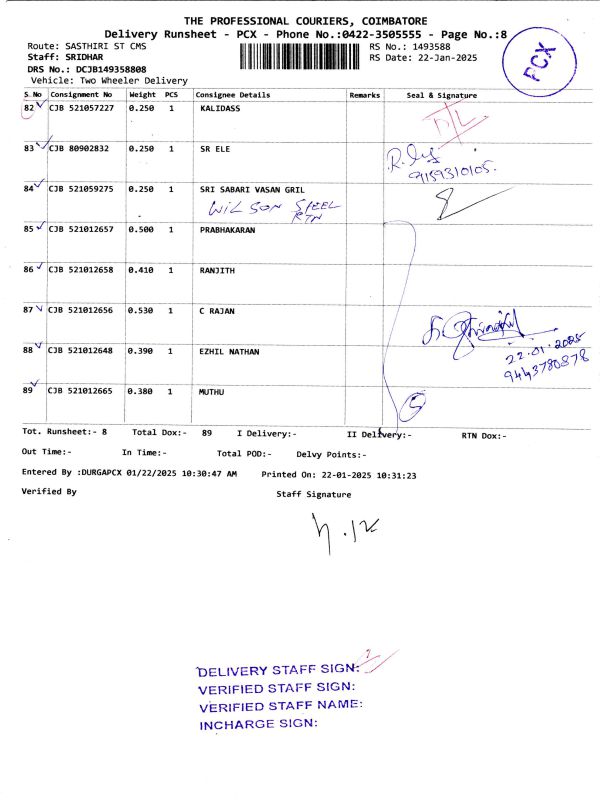 THE PROFESSIONAL COURIERS, COIMBATORE
Delivery Runsheet - PCX - Phone No.:0422-3505555 - Page No.:8
Route: SASTHIRI ST CMS RS No.: 1493588
Staff: SRIDHAR RS Date: 22-Jan-2025
DRS No.: DCJB149358808
Vehicle: Two Wheeler Delivery
PCX
S.No Consignment No Weight PCS Consignee Details Remarks Seal & Signature
82 CJB 521057227 0.250 1 KALIDASS D/L
83 CJB 80902832 0.250 1 SR ELE
9159310105.
84 CJB 521059275 0.250 1 SRI SABARI VASAN GRIL
WILSON STEEL
RTN
85 CJB 521012657 0.500 1 PRABHAKARAN
86 CJB 521012658 0.410 1 RANJITH
87 CJB 521012656 0.530 1 C RAJAN
22.01.2025
88 CJB 521012648 0.390 1 EZHIL NATHAN
9443780878
89 CJB 521012665 0.380 1 MUTHU 5
Tot. Runsheet:- 8 Total Dox:- 89 I Delivery:- II Delivery:- RTN Dox:-
Out Time:- In Time:- Total POD:- Delvy Points:-
Entered By :DURGAPCX 01/22/2025 10:30:47 AM Printed On: 22-01-2025 10:31:23
Verified By Staff Signature
DELIVERY STAFF SIGN:
VERIFIED STAFF SIGN:
VERIFIED STAFF NAME:
INCHARGE SIGN: